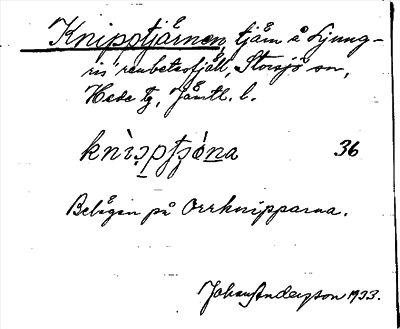 Knipptjärnen, tjärn å Ljung-
ris renbetesfjäll, Storsjö sn,
Hede tg, Jämtl. l.
36
Belägen på Orrknipparna.
Johan Anderzson 1933.